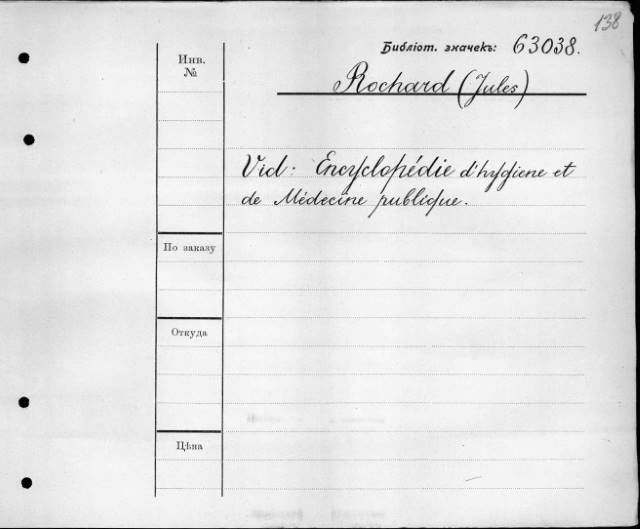 138
Библіот. значекъ: 63038.
Инв.
№
Rochard (Jules)
Vid: Encyclopédie d'hygiene et
de Médecine publique.
По заказу
Откуда
Цѣна